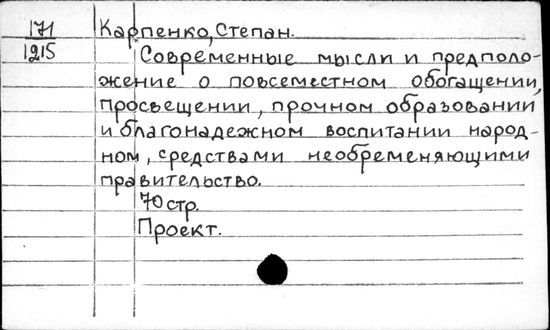 171
1215
Карпенко, Степан.
Современные мысли и предполо-
жение о повсеместном обогащении,
просвещении, прочном образовании
и благонадежном воспитании народ-
ном, средствами необременяющими
правительство.
70 стр.
Проект.